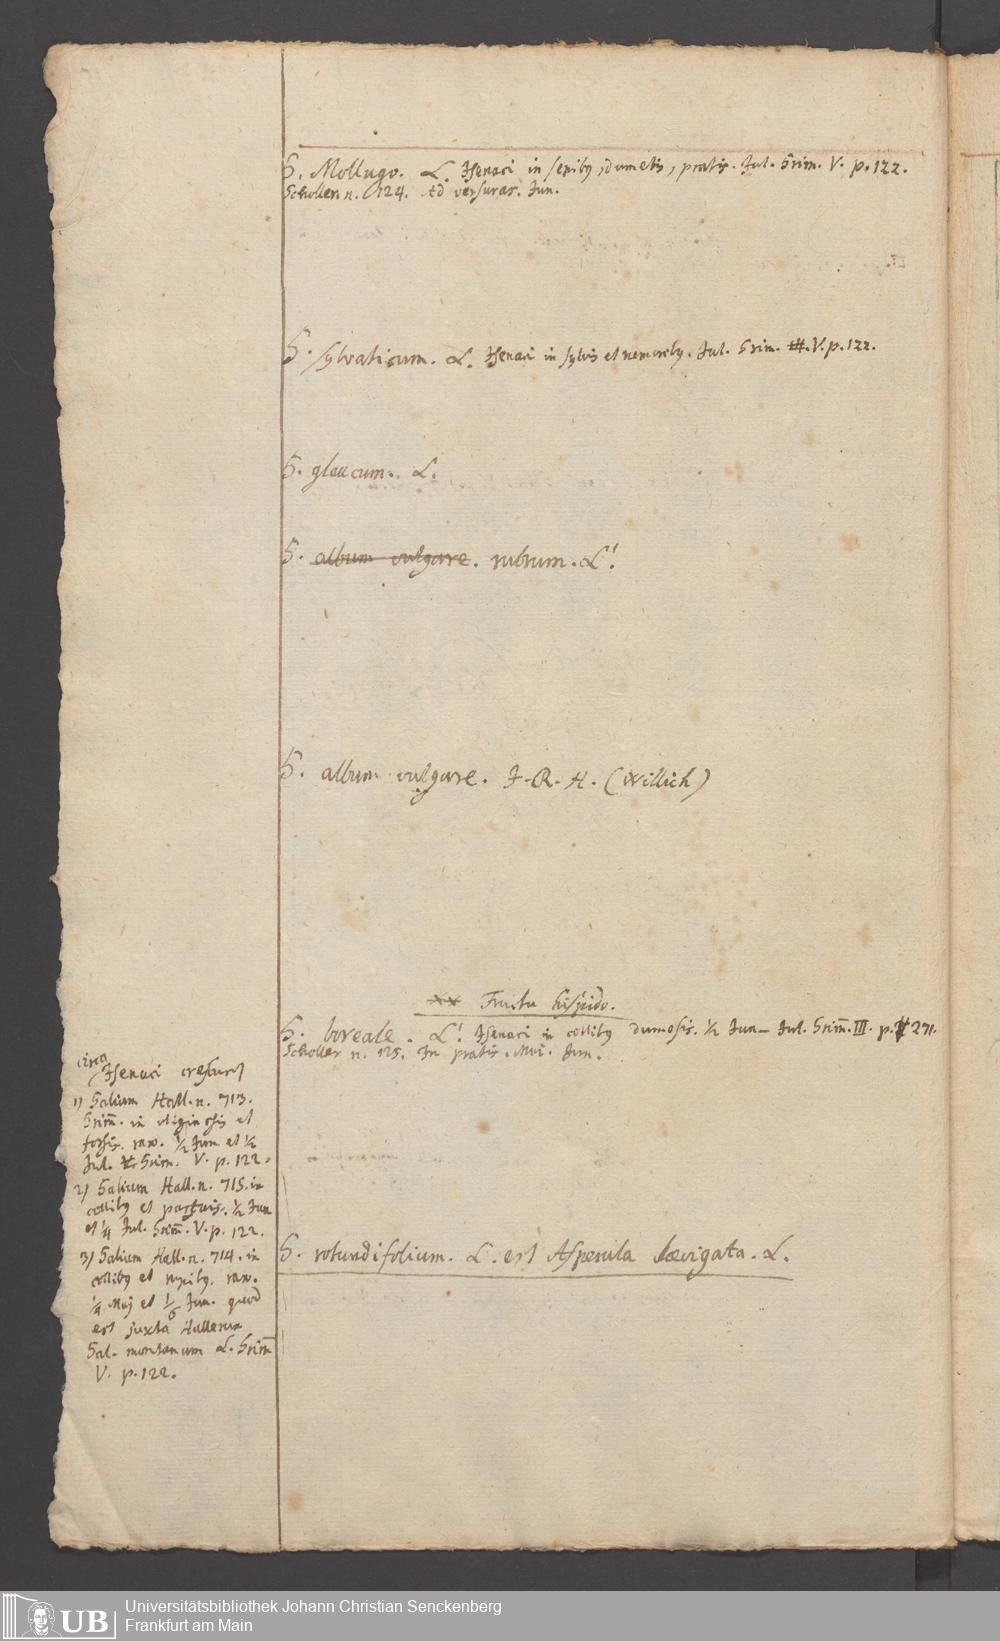 G. Mollugo. L. Isenaci in sepiby, dumetis, pratis. Jul. Grim. V. p. 122.
Scholler n. 124. Ad versuras. Jun.
G. sylvaticum. L. Isenaci in sylvis et nemoreby. Jul. Grim. III. V. p. 122.
G. glaucum. L.
G. album vulgare. rubrum. L!
G. album vulgare. J. R. H. (Willich)
xx Fructu hispido.
G. boreale. L! Isenaci in colliby dumosis. ½ Jun – Jul. Grim̄. III. p. 271.
Scholler n. 125. In pratis. Mai. Jun.
circa
Isenaci crescunt
1) Galium Hall. n. 713.
Grim̄. in uliginosis et
fossis. rar. ½ Jun et ½
Jul. Grim. V. p. 122.
2) Galium Hall. n. 715. in
colliby et pascuis. ½ Jun
et ¼ Jul. Grim̄. V. p. 122.
3) Galium Hall. n. 714. in
colliby et rupiby. rar.
¼ Maj et 1/6 Jun. quod
est juxta Hallerum
Gal. montanum L. Grim̄
V. p. 122.
G. rotundifolium. L. est Asperula laevigata. L.
UB Universitätsbibliothek Johann Christian Senckenberg
Frankfurt am Main